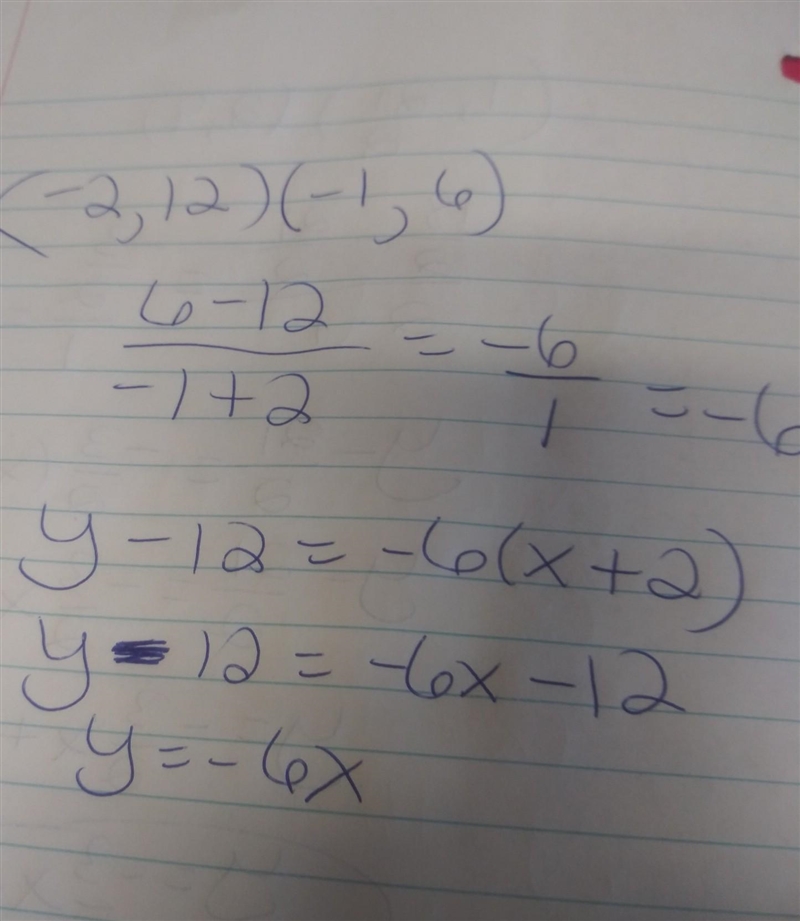 (-2, 12)(-1, 6)
6-12 / -1+2 = -6 / 1 = -6
y - 12 = -6(x + 2)
y - 12 = -6x - 12
y = -6x